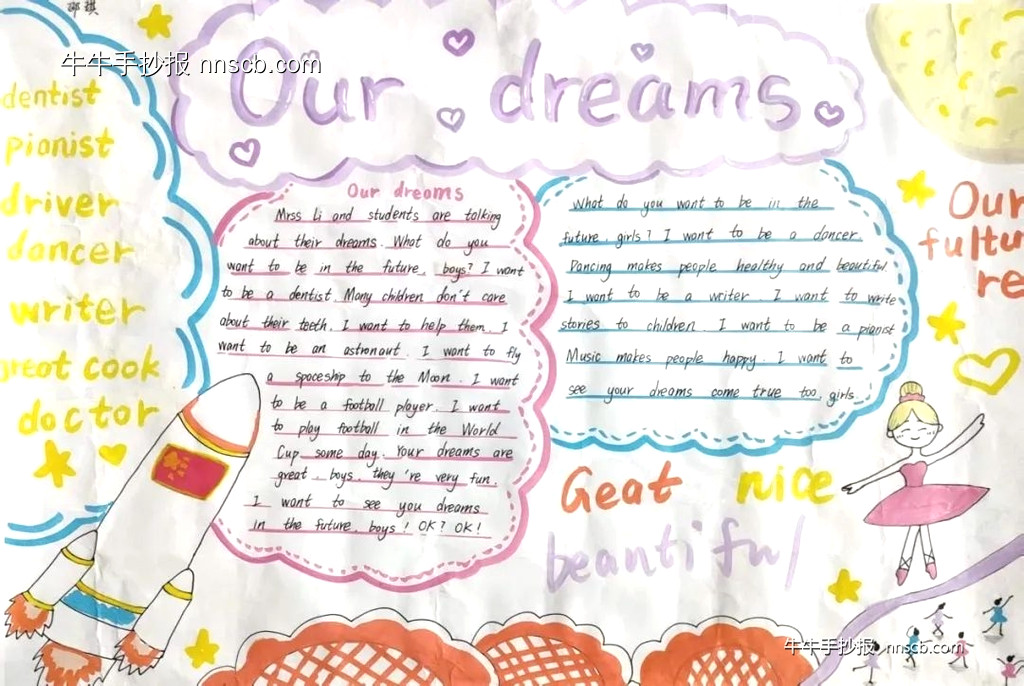 邵琪
牛牛手抄报 nnscb.com
Our dreams
dentist
pianist
driver
dancer
writer
great cook
doctor
Our dreams
Mrss Li and students are talking
about their dreams. What do you
want to be in the future, boys? I want
to be a dentist. Many children don't care
about their teeth. I want to help them. I
want to be an astronaut. I want to fly
a spaceship to the Moon. I want
to be a football player. I want
to play football in the World
Cup some day. Your dreams are
great, boys, they're very fun.
I want to see you dreams
in the future, boys! OK? OK!
What do you want to be in the
future, girls? I want to be a dancer.
Dancing makes people healthy and beautiful.
I want to be a writer. I want to write
stories to children. I want to be a pianist
Music makes people happy. I want to
see your dreams come true too, girls.
Our
fultu
re
Geat nice
beautiful
牛牛手抄报 nnscb.com